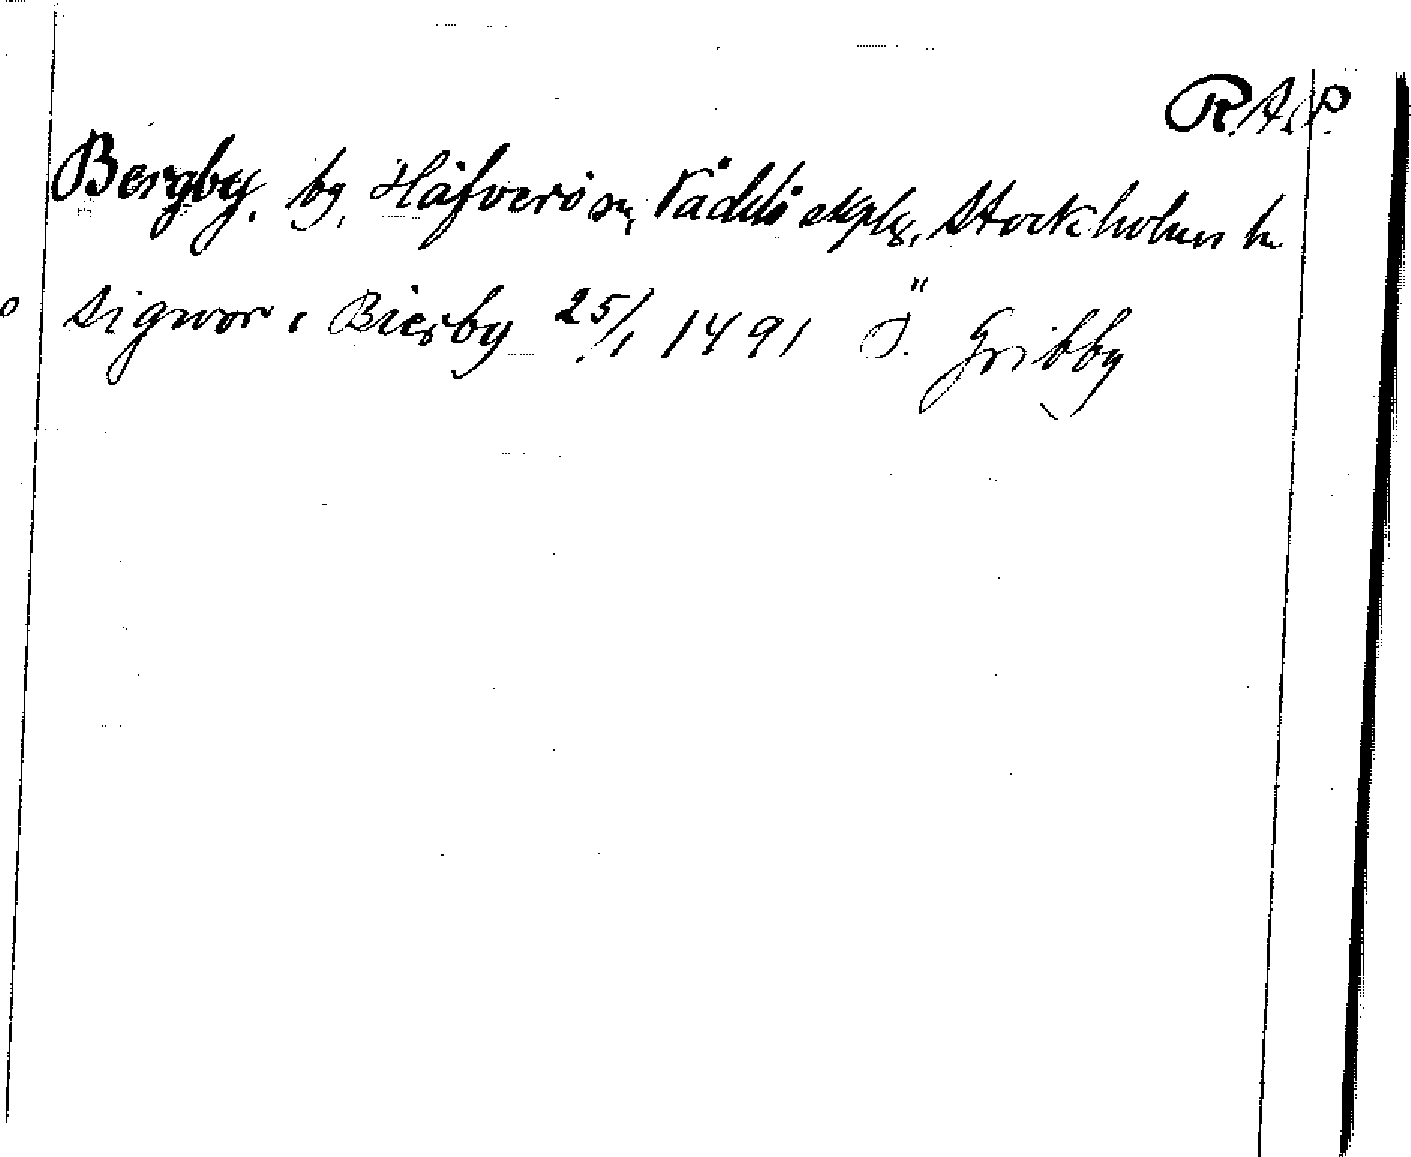 R.A.P.
Bergby, by, Häfverö sn, Väddö skplg, Stockholms l.
o Sigwor i Biersby 25/1 1491 Ö. Gribby